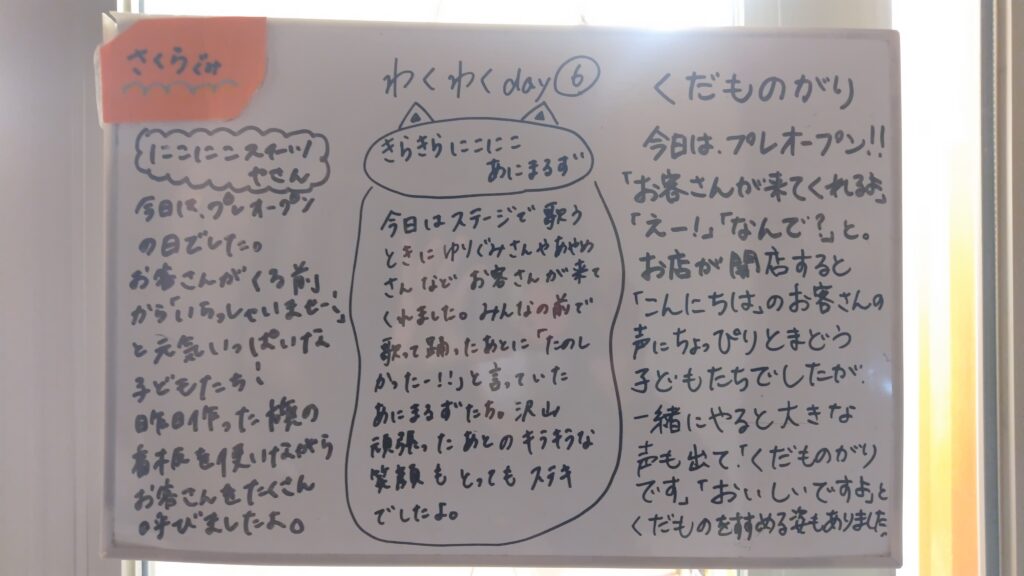 さくらぐみ
わくわくday⑥
にこにこスイーツ/
やさん
今日は、プレオープン
の日でした。
お客さんがくる前
から「いらっしゃいませー!」
と元気いっぱいな
子どもたち!
昨日作った旗の
看板を使いながら
お客さんをたくさん
呼びましたよ。
きらきらにこにこ
あにまるず
今日はステージで歌う
ときにゆりぐみさんやあやめ
さんなどお客さんが来て
くれました。みんなの前で
歌って踊ったあとに「たのし
かったー!!」と言っていた
あにまるずたち。沢山
頑張ったあとのキラキラな
笑顔もとってもステキ
でしたよ。
くだものがり
今日は、プレオープン!!
「お客さんが来てくれるよ」
「えー!」「なんで?」と。
お店が開店すると
「こんにちは」のお客さんの
声にちょっぴりとまどう
子どもたちでしたが、
一緒にやると大きな
声も出て、「くだものがり
です」「おいしいですよ」と
くだものをすすめる姿もありました。